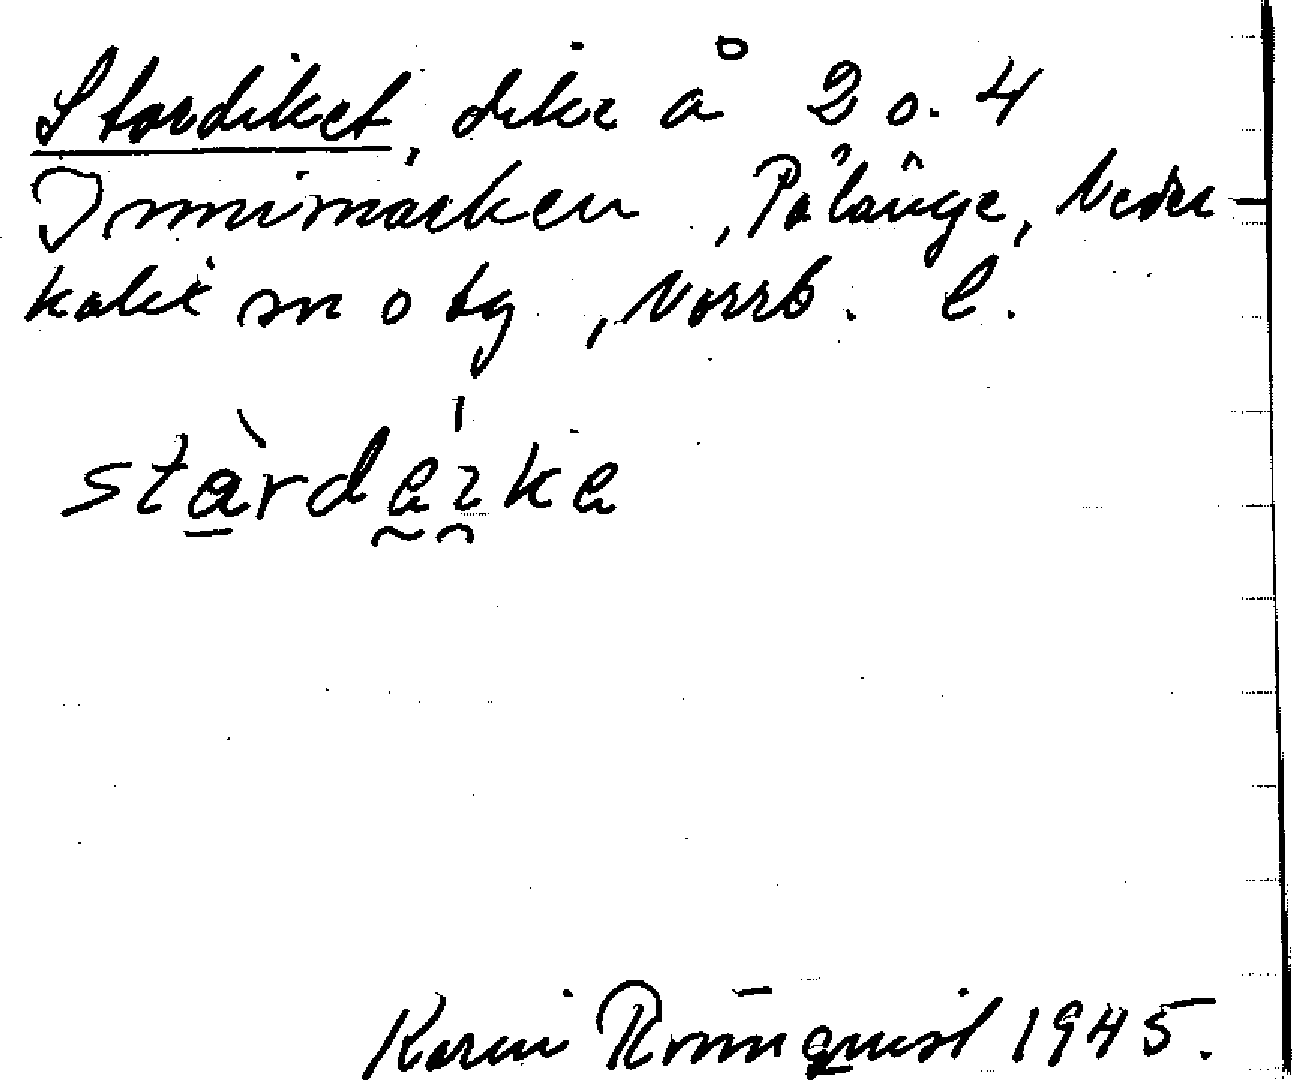 Stordiket, dike å 2 o. 4
Innimarken, Pålänge, Neder-
kalix sn o tg, Norrb. l.
stàrdeike
Karin Rönnquist 1945.